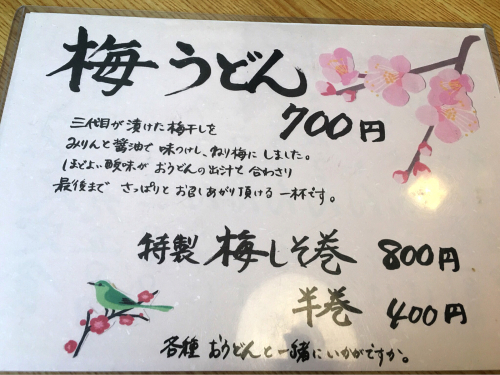 梅うどん
700円
三代目が漬けた梅干しを
みりんと醤油で味つけし、ねり梅にしました。
ほどよい酸味がおうどんの出汁と合わさり
最後までさっぱりとお召しあがり頂ける一杯です。
特製 梅しそ巻 800円
半巻 400円
各種 おうどんと一緒にいかがですか。